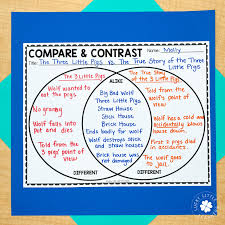 COMPARE & CONTRAST Name: Molly
Title: The Three Little Pigs vs. The True Story of the Three Little Pigs
The 3 Little Pigs
ALIKE
The True Story of the 3 Little Pigs
Wolf wanted to eat the pigs
No granny
Wolf falls into pot and dies
Told from the 3 pigs' point of view
Big Bad Wolf
Three Little Pigs
Straw House
Stick House
Brick House
Ends badly for wolf
Wolf destroys stick and straw houses
Brick house was not damaged
Told from the wolf's point of view
Wolf has a cold and accidentally blows house down.
First 2 pigs died in accidents.
The wolf goes to jail
DIFFERENT
DIFFERENT